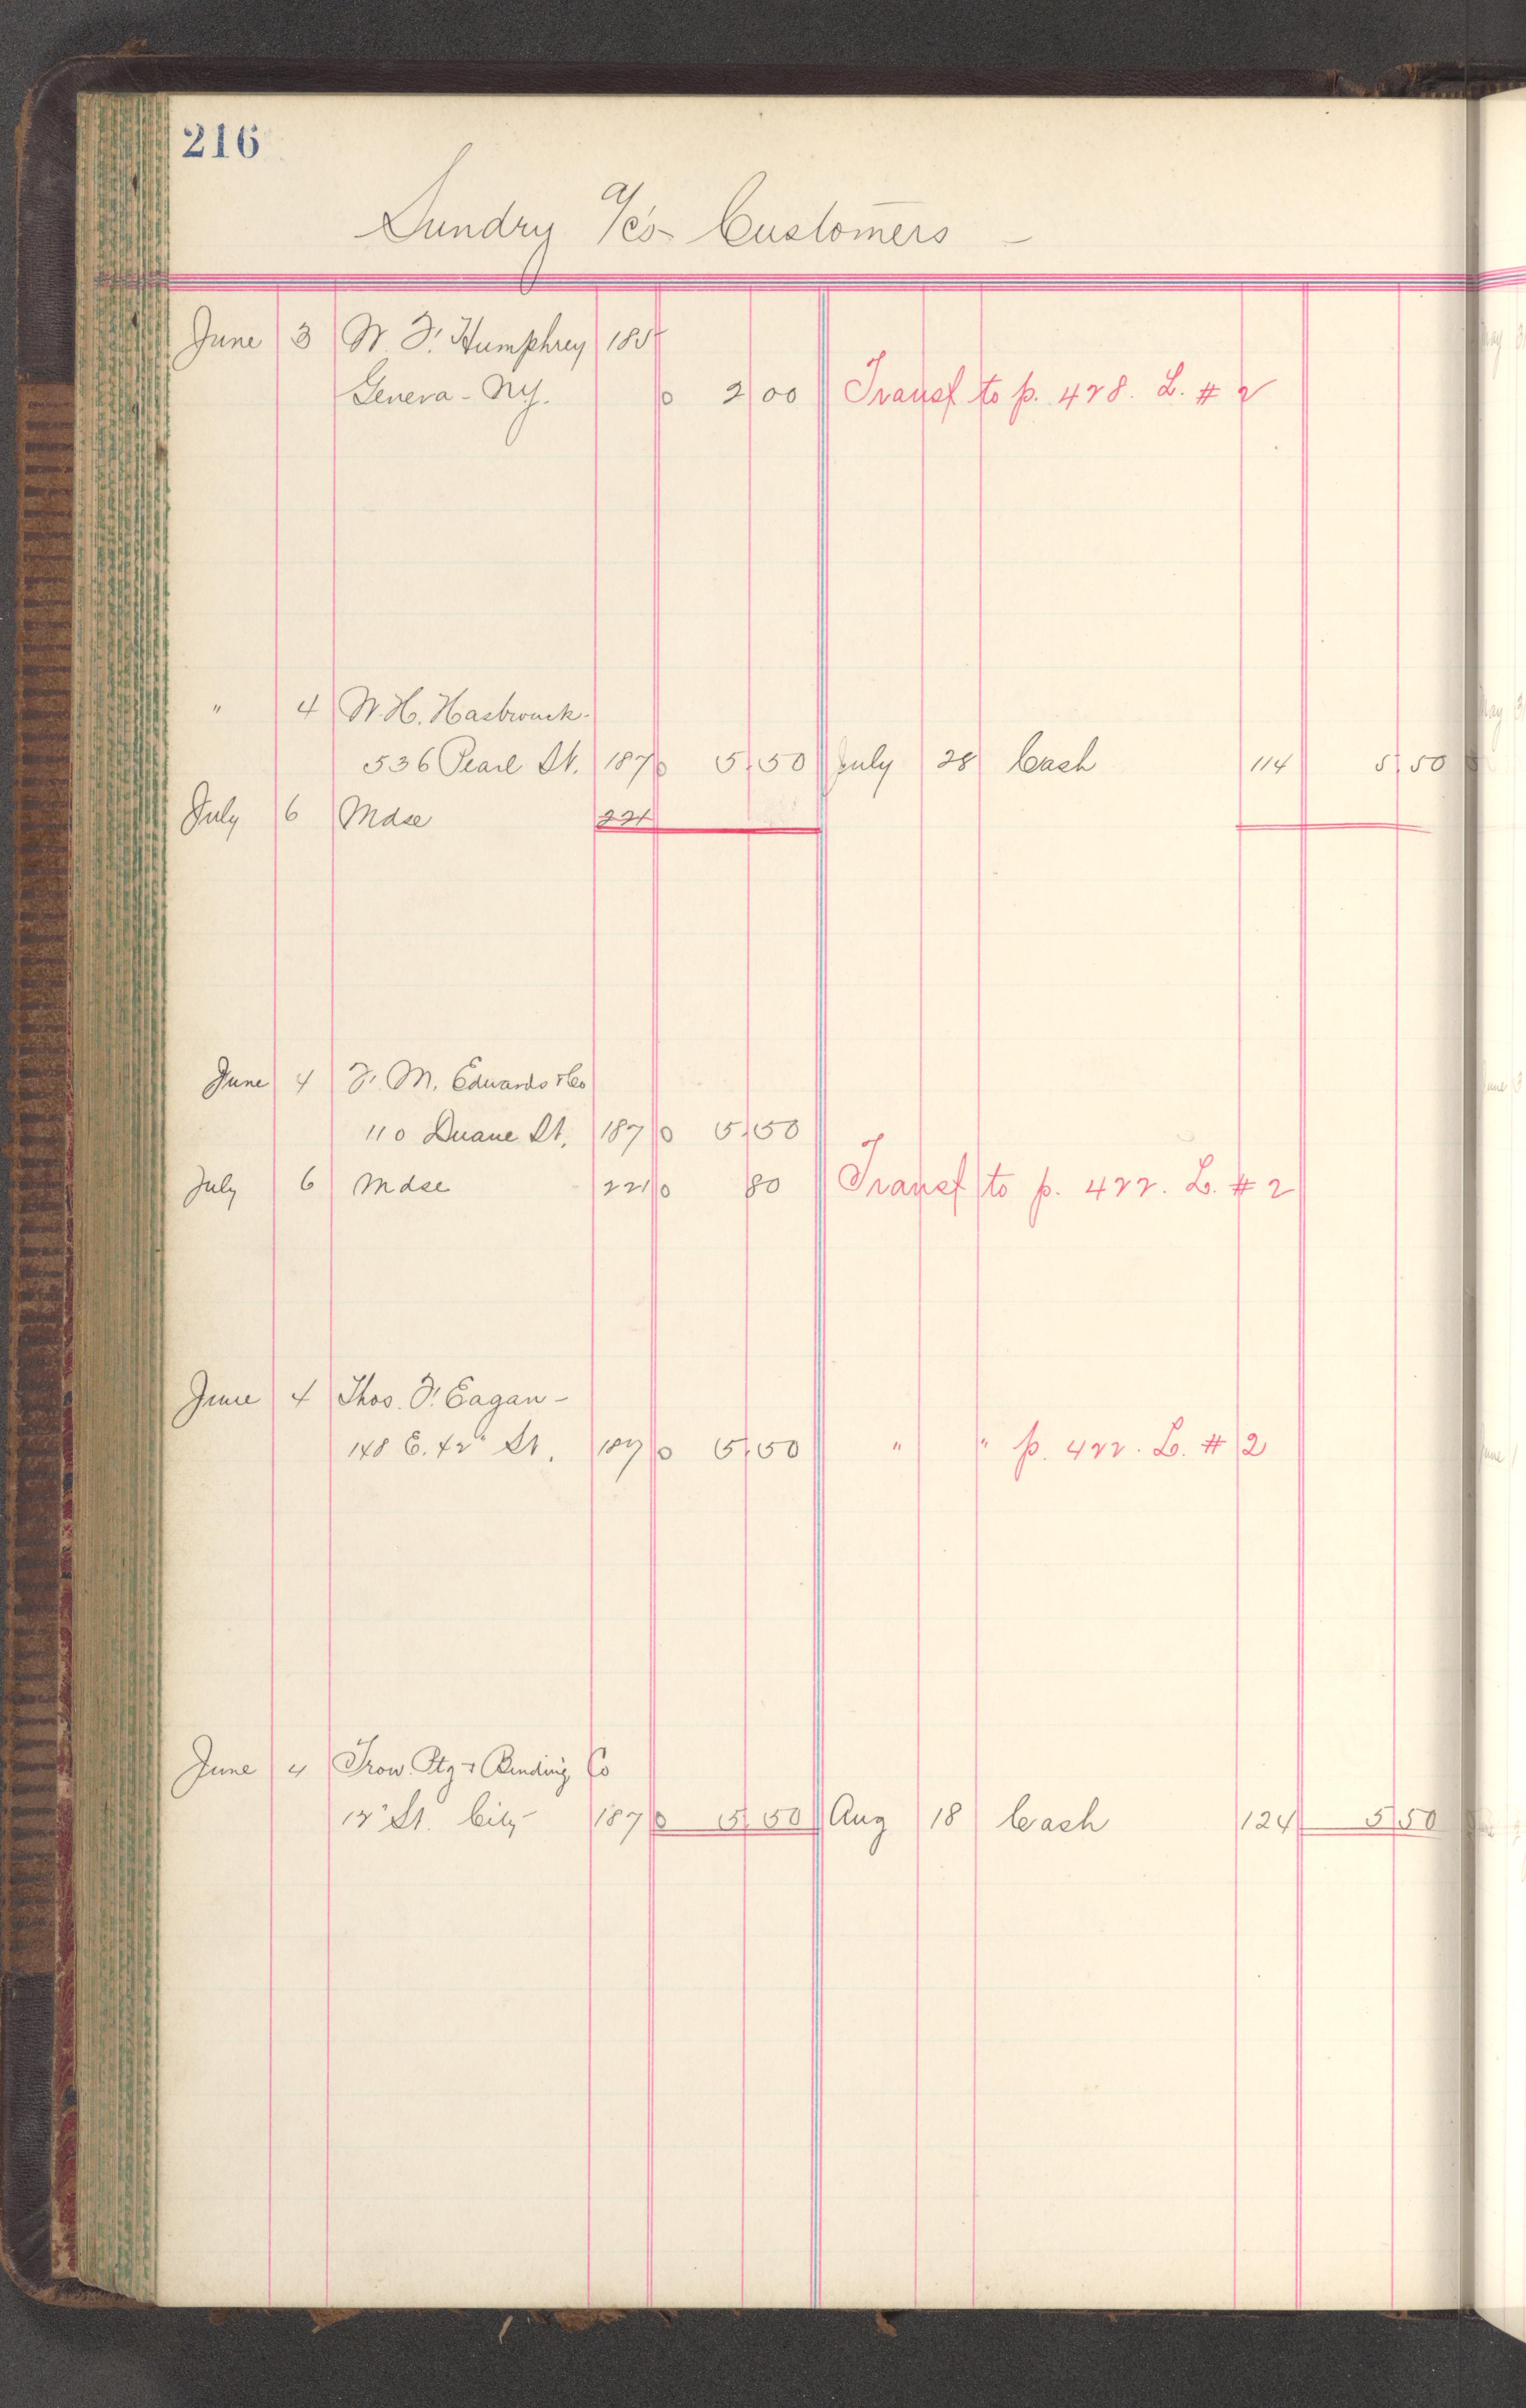 216
Sundry a/c's - Customers -
June 3 W. F. Humphrey 185
Geneva - N.Y. 0 2 00 Transf to p. 428. L. # 2
" 4 W. H. Hasbrouck -
536 Pearl St. 187 0 5 50 July 28 Cash 114 5 50
July 6 Mdse 221
June 4 F. M. Edwards & Co
110 Duane St. 187 0 5 50
July 6 Mdse 221 0 80 Transf to p. 422. L. # 2
June 4 Thos. F. Eagan -
148 E. 42" St. 187 0 5 50 " " p. 422. L. # 2
June 4 Trow Ptg & Binding Co
12" St. City 187 0 5 50 Aug 18 Cash 124 5 50